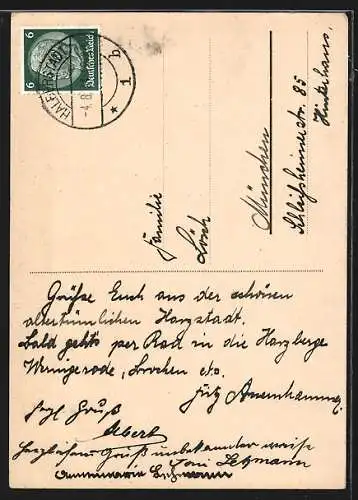 HALBERSTADT
-4.8.
* 1 b
6 Deutsches Reich 6
Familie
Lösch
München
Schleißheimerstr. 85
Hinterhaus.
Grüße Euch aus der schönen
altertümlichen Harzstadt.
Bald gehts per Rad in die Harzberge
Wernigerode, Brocken etc.
Fritz
frzl Gruß
Albert
Herzlichen Gruß unbekannter weise
Toni Letzmann
Annemarie Letzmann